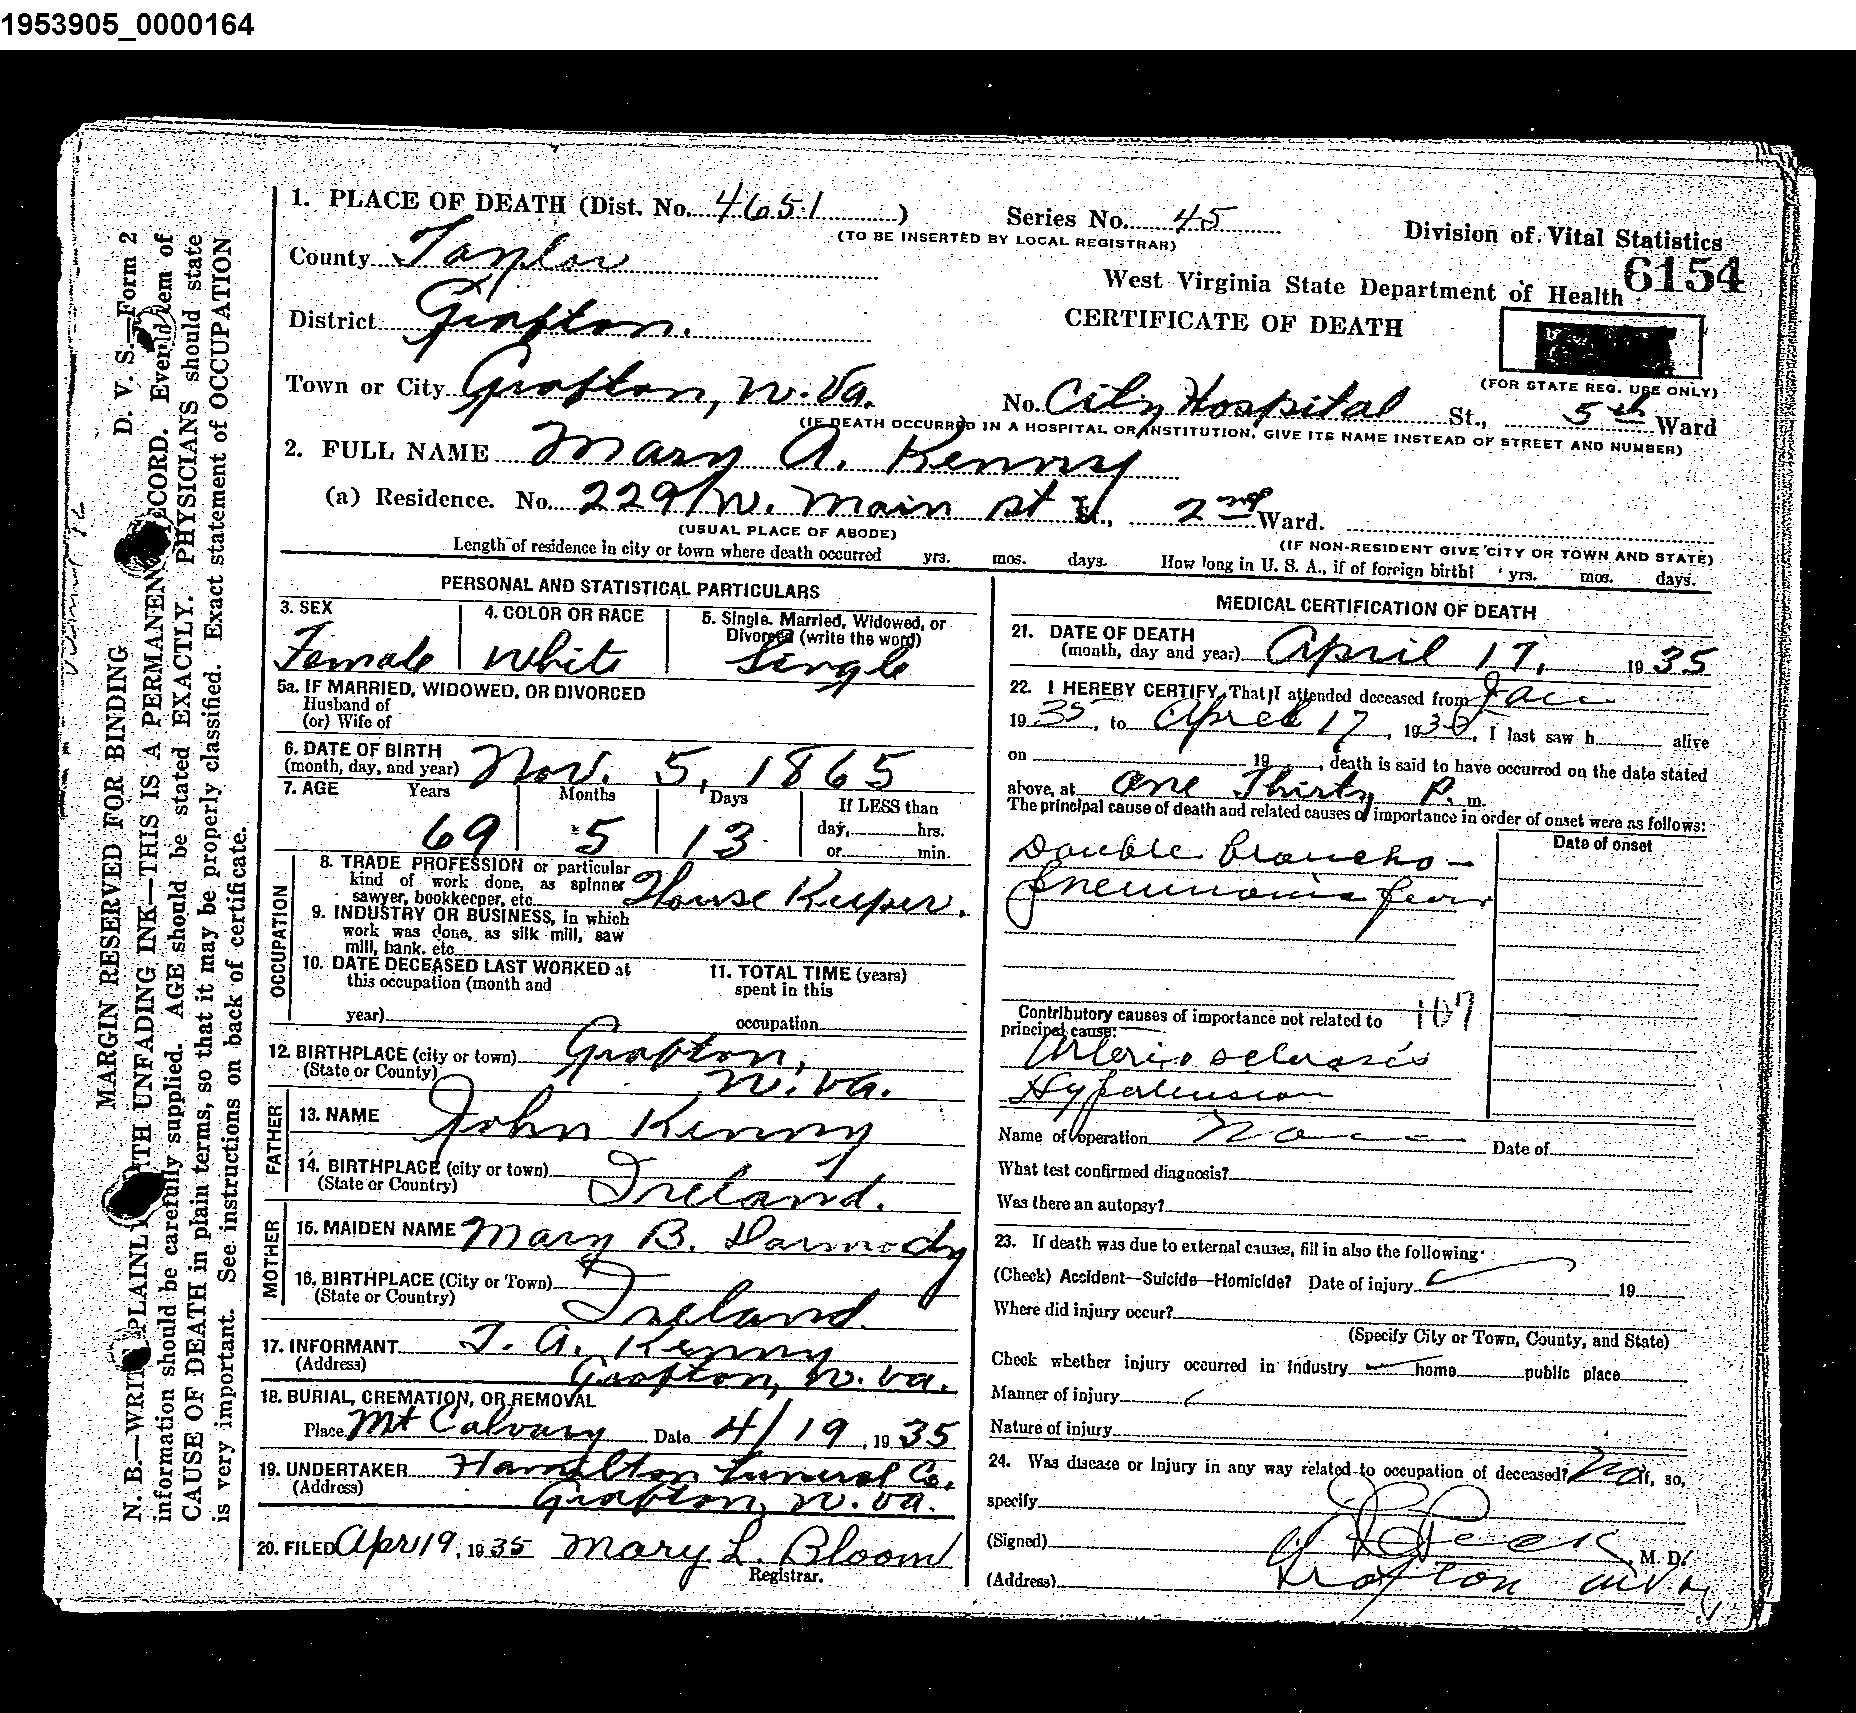 1953905_0000164
1. PLACE OF DEATH (Dist. No. 4651)
Series No. 45
(TO BE INSERTED BY LOCAL REGISTRAR)
Division of Vital Statistics
County Taylor
West Virginia State Department of Health
6154
District Grafton.
CERTIFICATE OF DEATH
(FOR STATE REG. USE ONLY)
Town or City Grafton, W. Va.
No. City Hospital St., 5th Ward
(IF DEATH OCCURRED IN A HOSPITAL OR INSTITUTION, GIVE ITS NAME INSTEAD OF STREET AND NUMBER)
2. FULL NAME Mary A. Kenny
(a) Residence. No. 229 W. Main st St., 2nd Ward.
(USUAL PLACE OF ABODE)
(IF NON-RESIDENT GIVE CITY OR TOWN AND STATE)
Length of residence in city or town where death occurred yrs. mos. days. How long in U. S. A., if of foreign birth? yrs. mos. days.
D. V. S.—Form 2
MARGIN RESERVED FOR BINDING
N. B.—WRITE PLAINLY WITH UNFADING INK—THIS IS A PERMANENT RECORD. Every item of
information should be carefully supplied. AGE should be stated EXACTLY. PHYSICIANS should state
CAUSE OF DEATH in plain terms, so that it may be properly classified. Exact statement of OCCUPATION
is very important. See instructions on back of certificate.
PERSONAL AND STATISTICAL PARTICULARS
3. SEX
Female
4. COLOR OR RACE
White
5. Single, Married, Widowed, or
Divorced (write the word)
Single
5a. IF MARRIED, WIDOWED, OR DIVORCED
Husband of
(or) Wife of
6. DATE OF BIRTH
(month, day, and year) Nov. 5, 1865
7. AGE Years Months Days If LESS than
69 5 13 day, hrs.
or min.
OCCUPATION
8. TRADE PROFESSION or particular
kind of work done, as spinner
sawyer, bookkeeper, etc. House Keeper.
9. INDUSTRY OR BUSINESS, in which
work was done, as silk mill, saw
mill, bank, etc.
10. DATE DECEASED LAST WORKED at
this occupation (month and
year)
11. TOTAL TIME (years)
spent in this
occupation
12. BIRTHPLACE (city or town) Grafton,
(State or County) W. Va.
FATHER
13. NAME John Kenny
14. BIRTHPLACE (city or town)
(State or Country) Ireland.
MOTHER
15. MAIDEN NAME Mary B. Darmody
16. BIRTHPLACE (City or Town)
(State or Country) Ireland
17. INFORMANT T. A. Kenny
(Address) Grafton, W. Va.
18. BURIAL, CREMATION, OR REMOVAL
Place Mt Calvary Date 4/19, 1935
19. UNDERTAKER Hamilton Funeral Co.
(Address) Grafton, W. Va.
20. FILED Apr 19, 1935 Mary L. Bloom
Registrar.
MEDICAL CERTIFICATION OF DEATH
21. DATE OF DEATH
(month, day and year) April 17, 1935
22. I HEREBY CERTIFY, That I attended deceased from Jan
1935, to April 17, 1935, I last saw h alive
on 19 , death is said to have occurred on the date stated
above, at One Thirty P. m.
The principal cause of death and related causes of importance in order of onset were as follows:
Date of onset
Double Broncho-
pneumonia
Contributory causes of importance not related to
principal cause: 107
Arterio sclerosis
Hypertension
Name of operation Date of
What test confirmed diagnosis?
Was there an autopsy?
23. If death was due to external causes, fill in also the following:
(Check) Accident—Suicide—Homicide? Date of injury 19
Where did injury occur?
(Specify City or Town, County, and State)
Check whether injury occurred in industry home public place
Manner of injury
Nature of injury
24. Was disease or Injury in any way related to occupation of deceased? No If, so,
specify
(Signed) Peck, M. D.
(Address) Grafton W Va